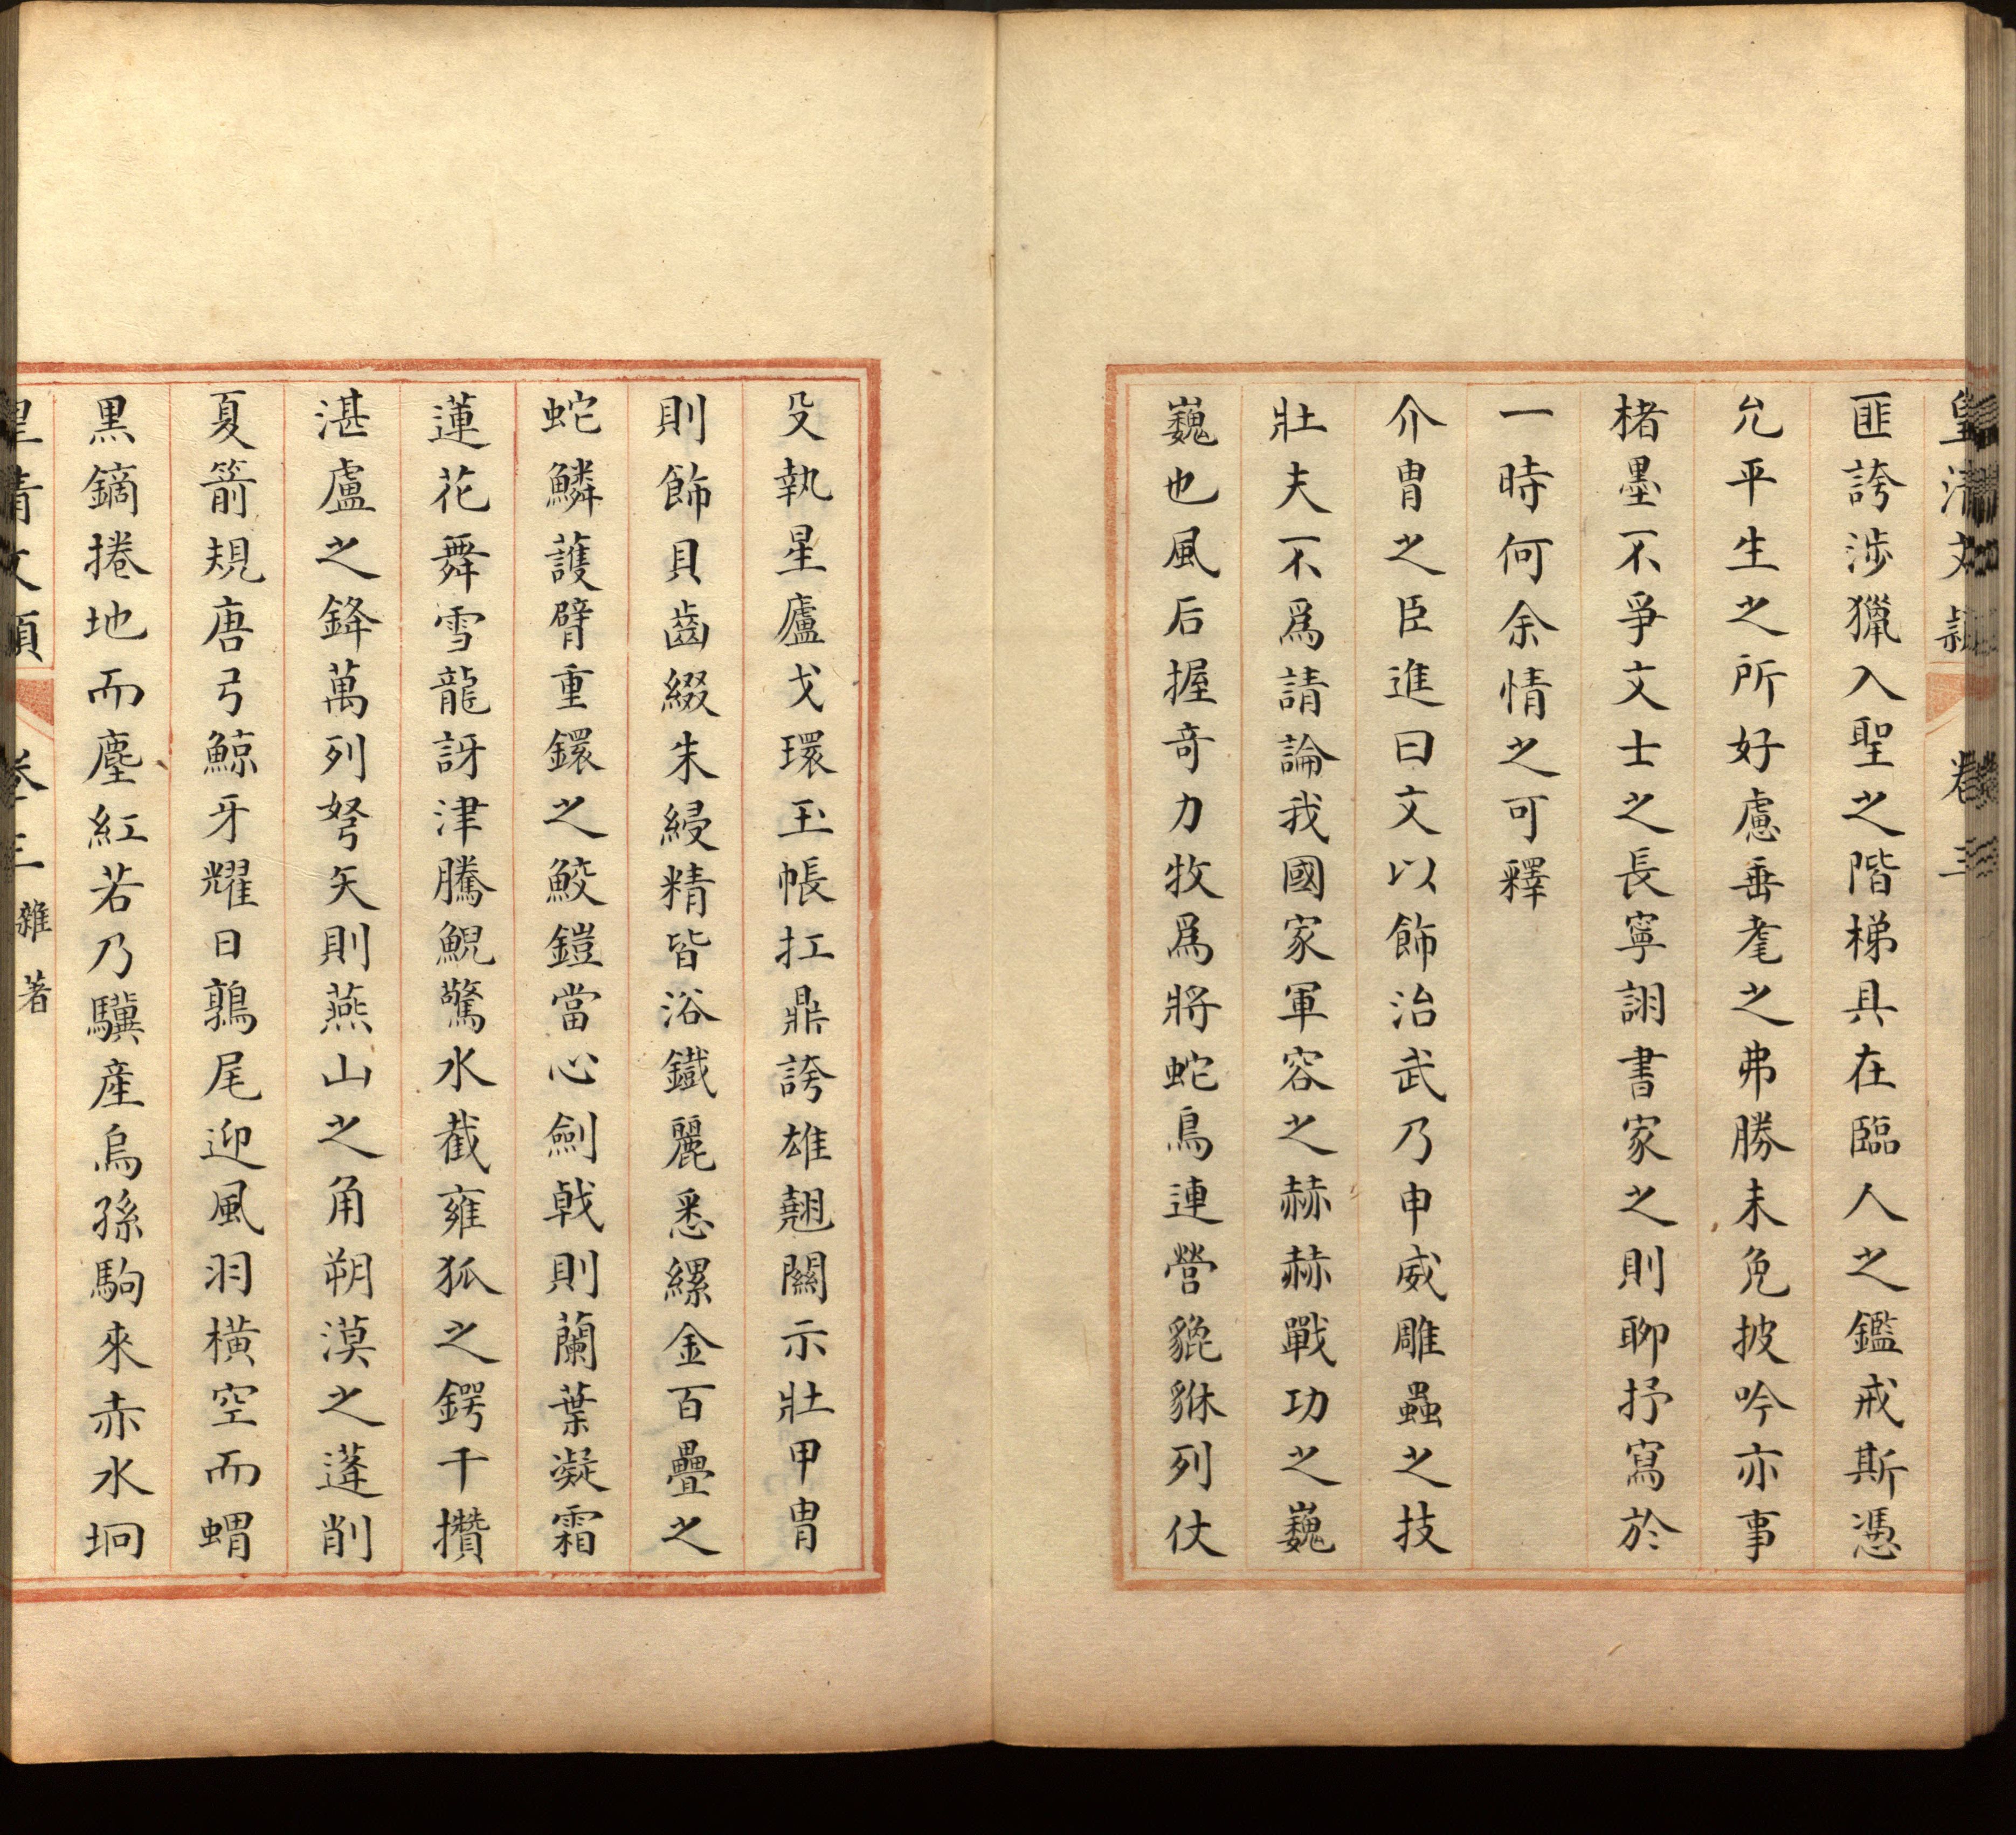 皇清文穎　卷三
匪誇渉獵入聖之階梯具在臨人之鑑戒斯憑
允平生之所好慮垂耄之弗勝未免披吟亦事
楮墨不爭文士之長寧詡書家之則聊抒寫於
一時何余情之可釋
介胄之臣進曰文以飾治武乃申威雕蟲之技
壯夫不爲請論我國家軍容之赫赫戰功之巍
巍也風后握奇力牧爲將蛇鳥連營貔貅列仗
殳執星廬戈環玉帳扛鼎誇雄翹關示壯甲胄
則飾貝齒綴朱綅精皆浴鐵麗悉縲金百疊之
蛇鱗護臂重鐶之鮫鎧當心劍戟則蘭葉凝霜
蓮花舞雪龍訝津騰鯢驚水截雍狐之鍔千攢
湛盧之鋒萬列弩矢則燕山之角朔漠之蓬削
夏箭規唐弓鯨牙耀日鶉尾迎風羽橫空而蝟
黑鏑捲地而塵紅若乃驥產烏孫駒來赤水坰
皇清文穎　卷三　雜著